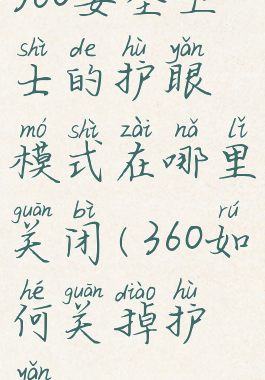 360安全卫
shì de hù yǎn
士的护眼
mó shì zài nǎ lǐ
模式在哪里
guān bì rú
关闭(360如
hé guān diào hù
何关掉护
yǎn